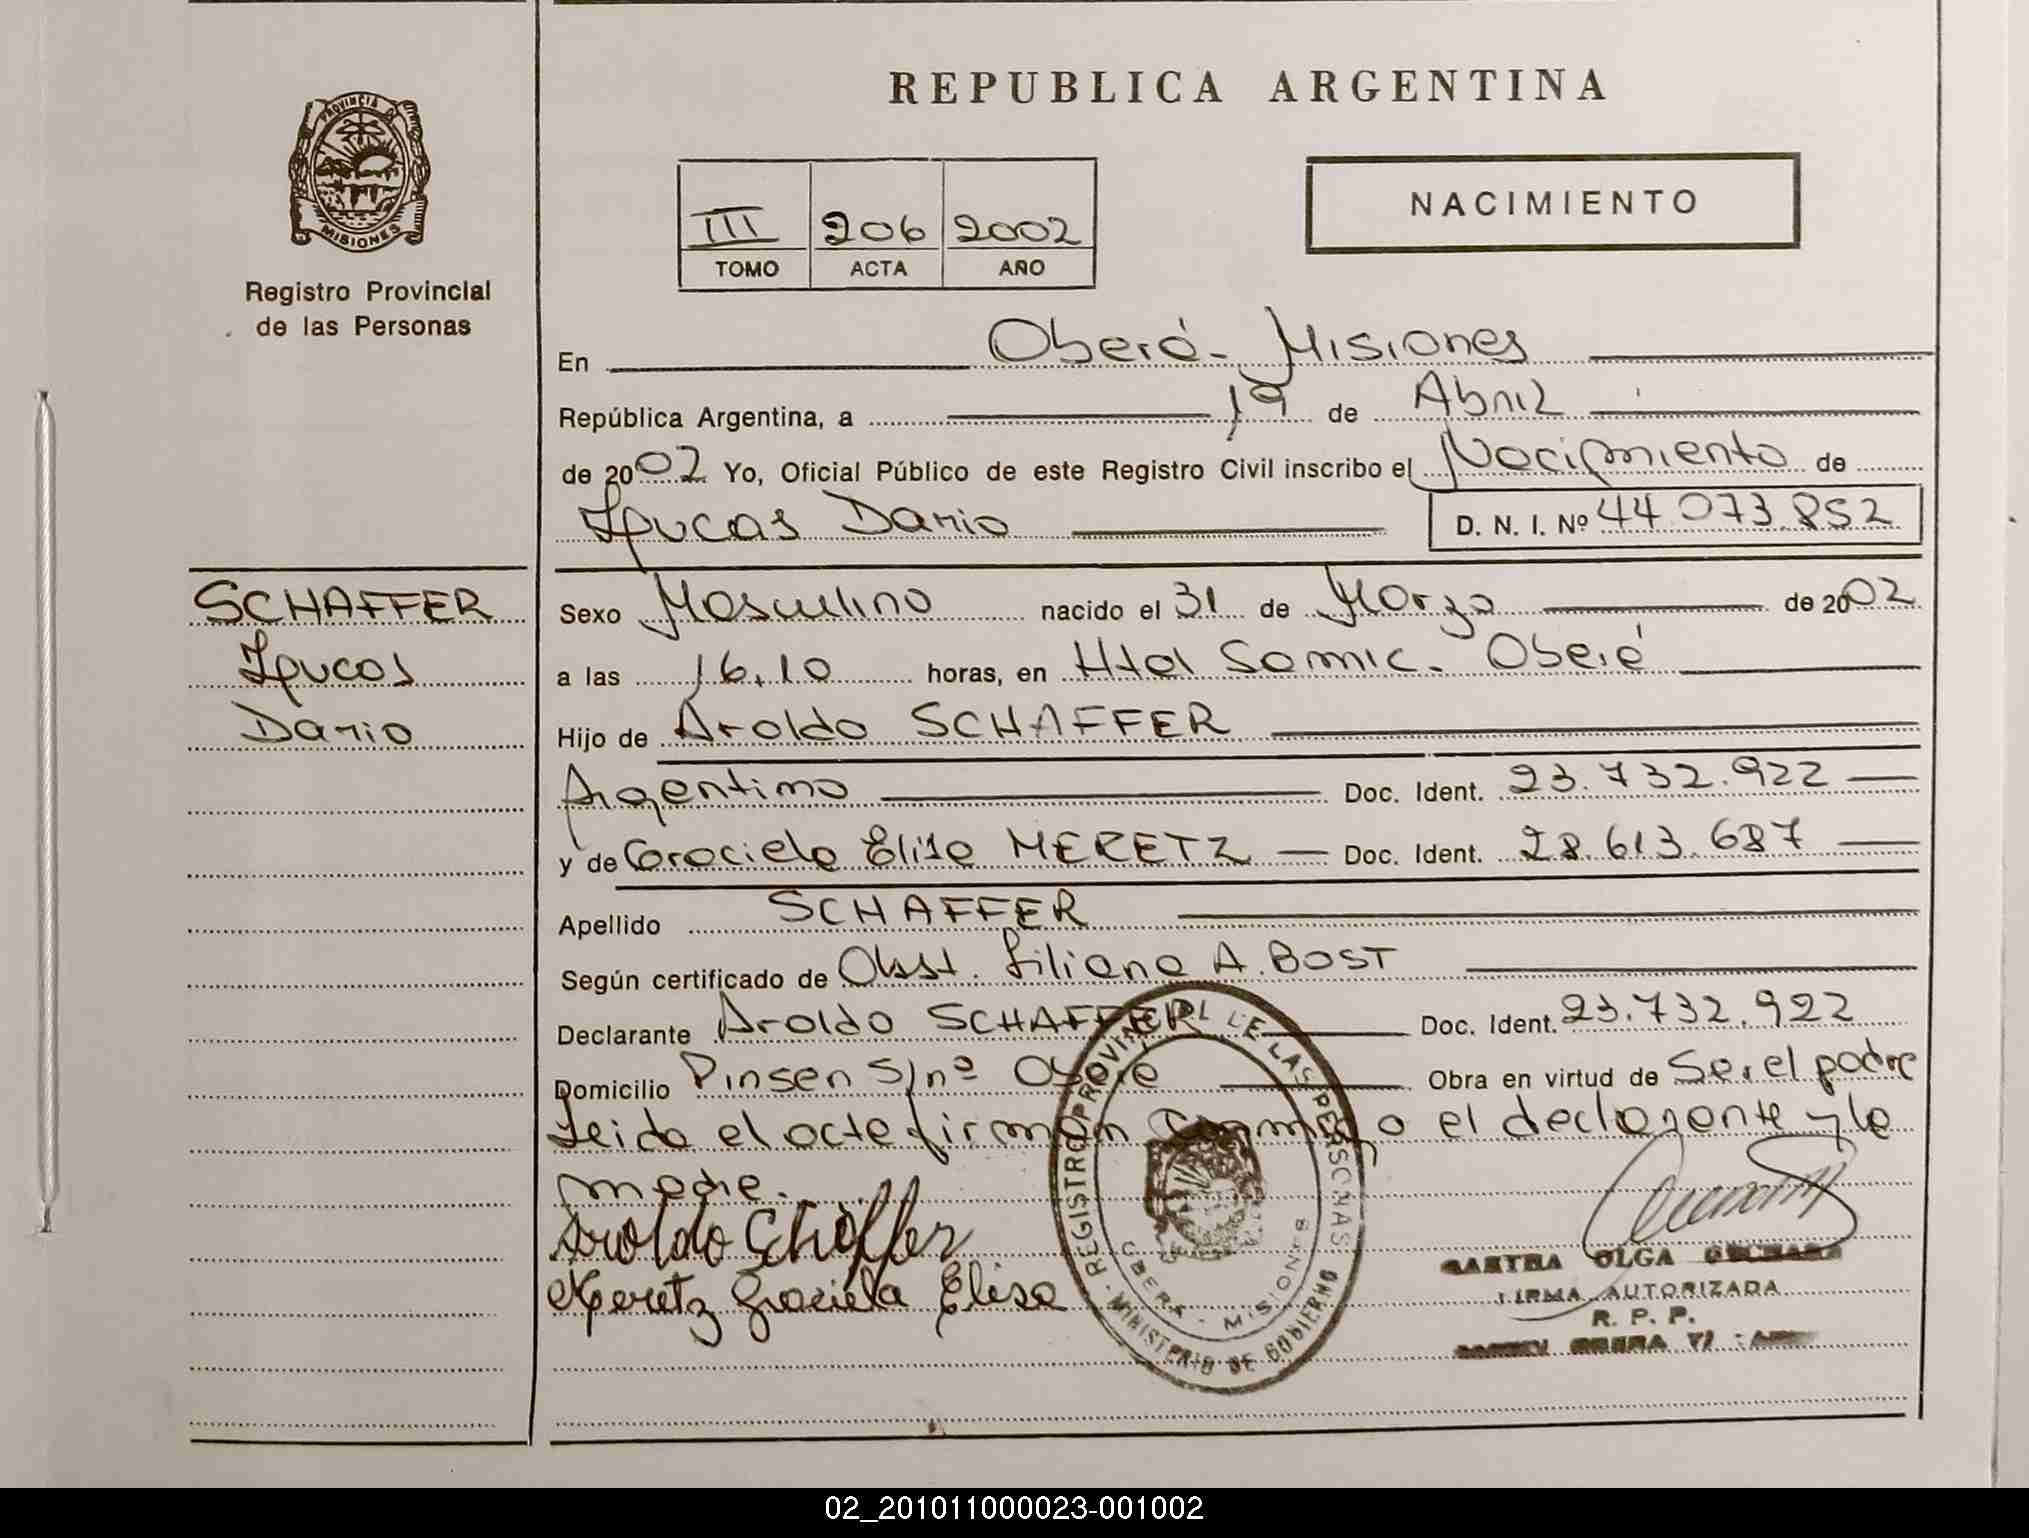 REPUBLICA ARGENTINA
PROVINCIA DE
MISIONES
Registro Provincial
de las Personas
III 206 2002
TOMO ACTA AÑO
NACIMIENTO
En Oberá - Misiones
República Argentina, a 19 de Abril
de 2002 Yo, Oficial Público de este Registro Civil inscribo el Nacimiento de
Lucas Dario D. N. I. Nº 44.073.852
SCHAFFER
Lucas
Dario
Sexo Masculino nacido el 31 de Marzo de 2002
a las 16,10 horas, en Htal Samic. Oberá
Hijo de Aroldo SCHAFFER
Argentino Doc. Ident. 23.732.922
y de Graciela Elisa MERETZ Doc. Ident. 28.613.687
Apellido SCHAFFER
Según certificado de Obst. Liliana A. BOST
Declarante Aroldo SCHAFFER Doc. Ident. 23.732.922
Domicilio Pinsen S/nº Oberá Obra en virtud de Ser el padre
Leida el acta firman conmigo el declarante y la
madre.
Aroldo Schäffer
Meretz Graciela Elisa
REGISTRO PROVINCIAL DE LAS PERSONAS
OBERA - MISIONES
MINISTERIO DE GOBIERNO
OLGA
FIRMA AUTORIZADA
R. P. P.
02_201011000023-001002